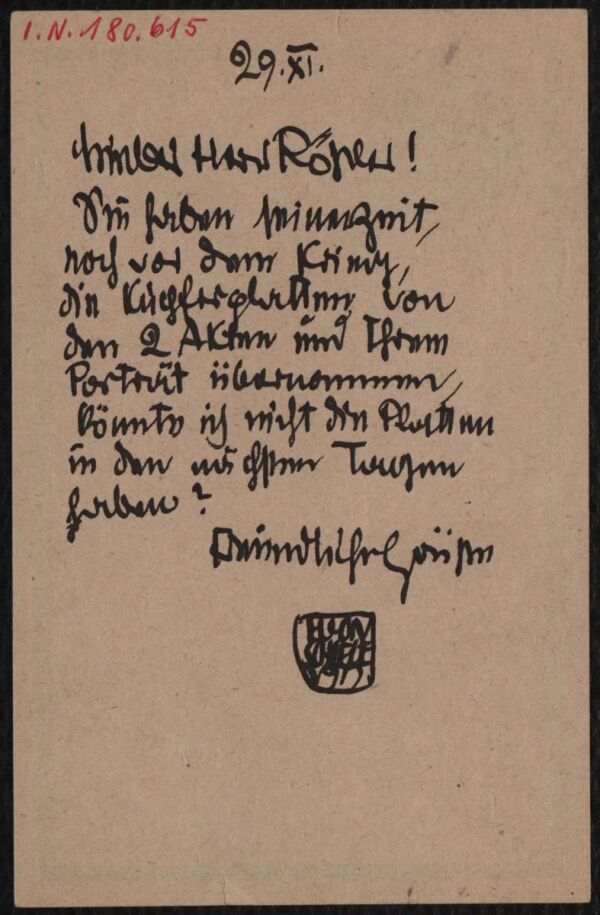 I.N. 180.615
29.XI.
Lieber Herr Rößler!
Sie haben seinerzeit,
noch vor dem Krieg,
die Kupferplatten von
den 2 Akten und Ihrem
Porträt übernommen,
könnte ich nicht die Platten
in den nächsten Tagen
haben?
Freundlichst grüßen
EGON
SCHIELE
1917.